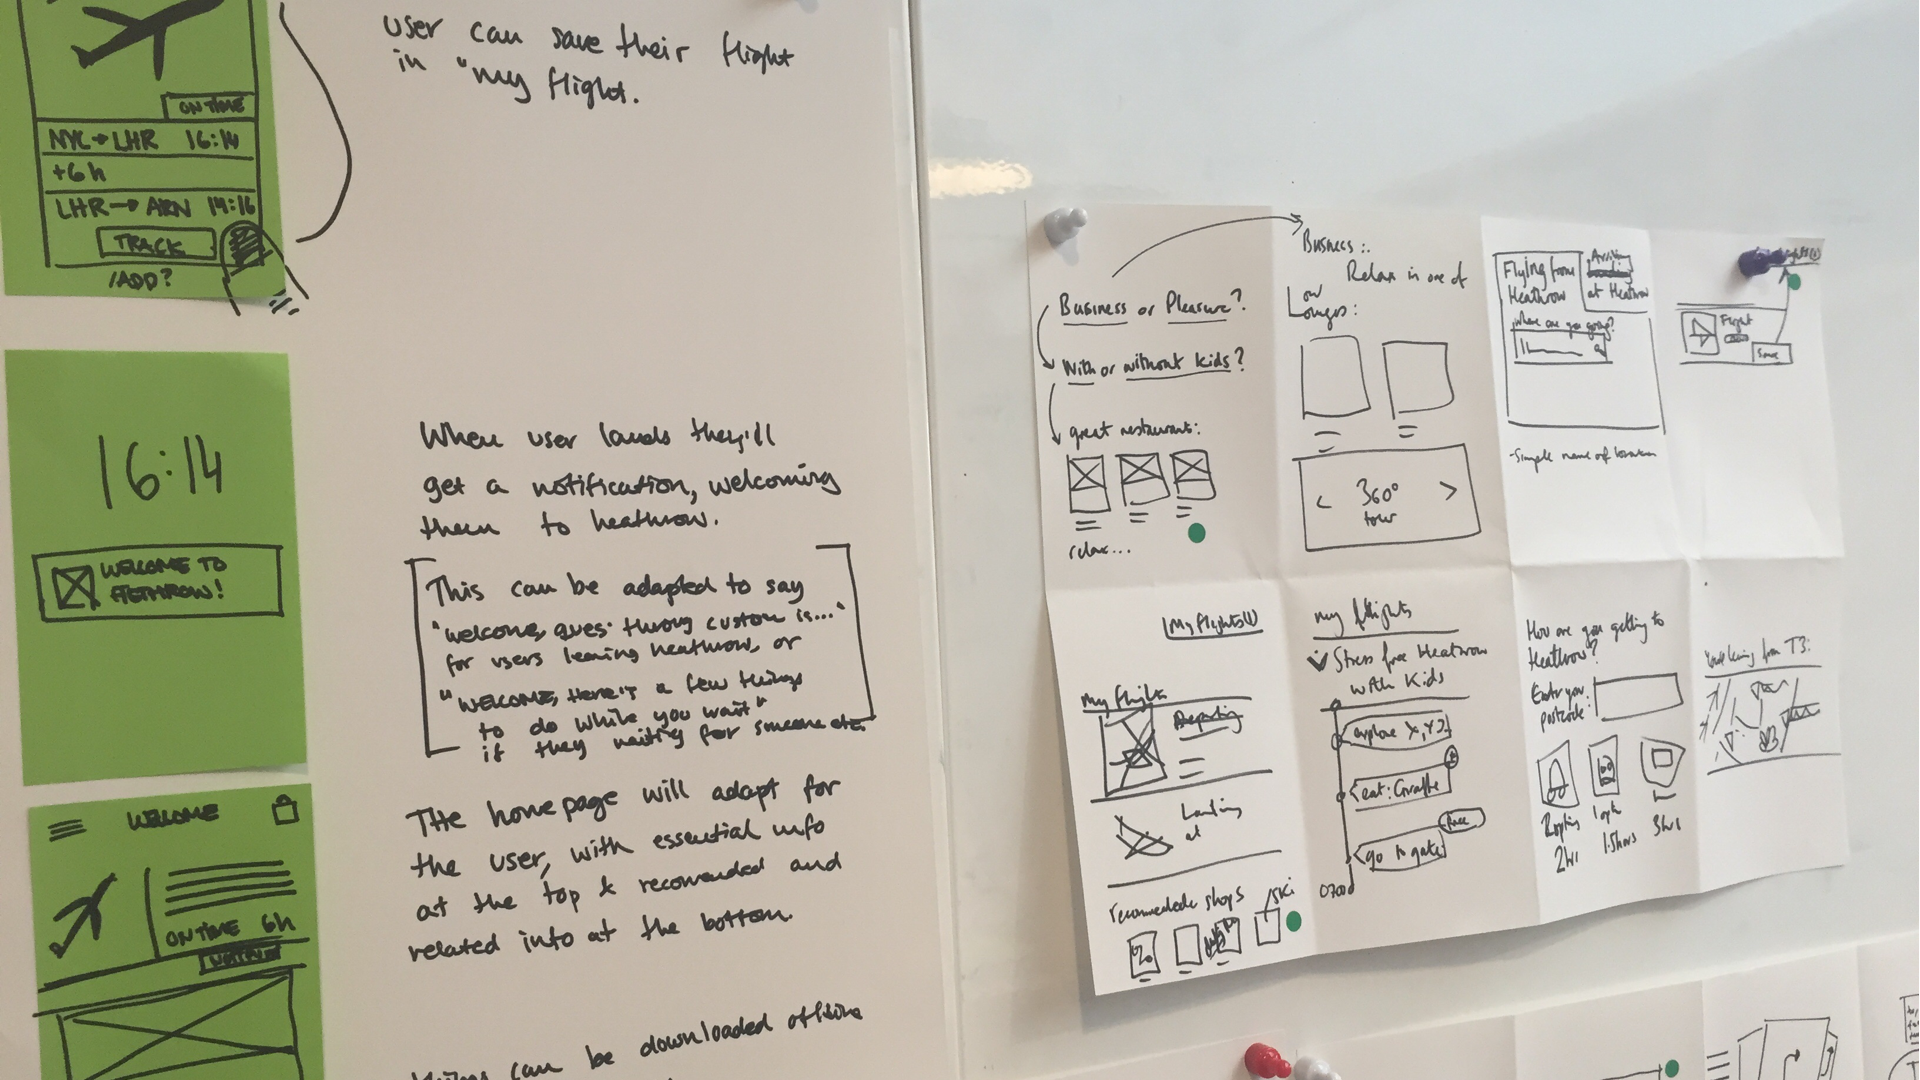 ON TIME
NYC→LHR 16:14
+6h
LHR→ARN 14:16
TRACK
/ADD?
user can save their flight
in "my flight.
16:14
WELCOME TO
HETHROW!
When user lands they'll
get a notification, welcoming
them to heathrow.
This can be adapted to say
"welcome, custom is..."
for users leaving heathrow, or
"WELCOME, Here's a few things
to do while you wait"
if they waiting for someone etc.
WELCOME
ON TIME 6h
The homepage will adapt for
the user, with essential info
at the top & recomended and
related info at the bottom.
can be downloaded offline
Business or Pleasure?
With or without kids?
great restaurant:
relax...
Business:
Relax in one of
our
Lounges:
< 360° >
tour
Flying from
Heathrow
at Heathrow
Where are you going?
-Simple name of location
Flight
Save
My flights(1)
My flight
Departing
Landing
at
shops
my flights
Stress free Heathrow
with Kids
explore X,Y,Z
eat: Giraffe
free
go to gate
0700
How are you getting to
Heathrow?
Enter your
postcode:
2hr
1.5hours
3hr
from T3: